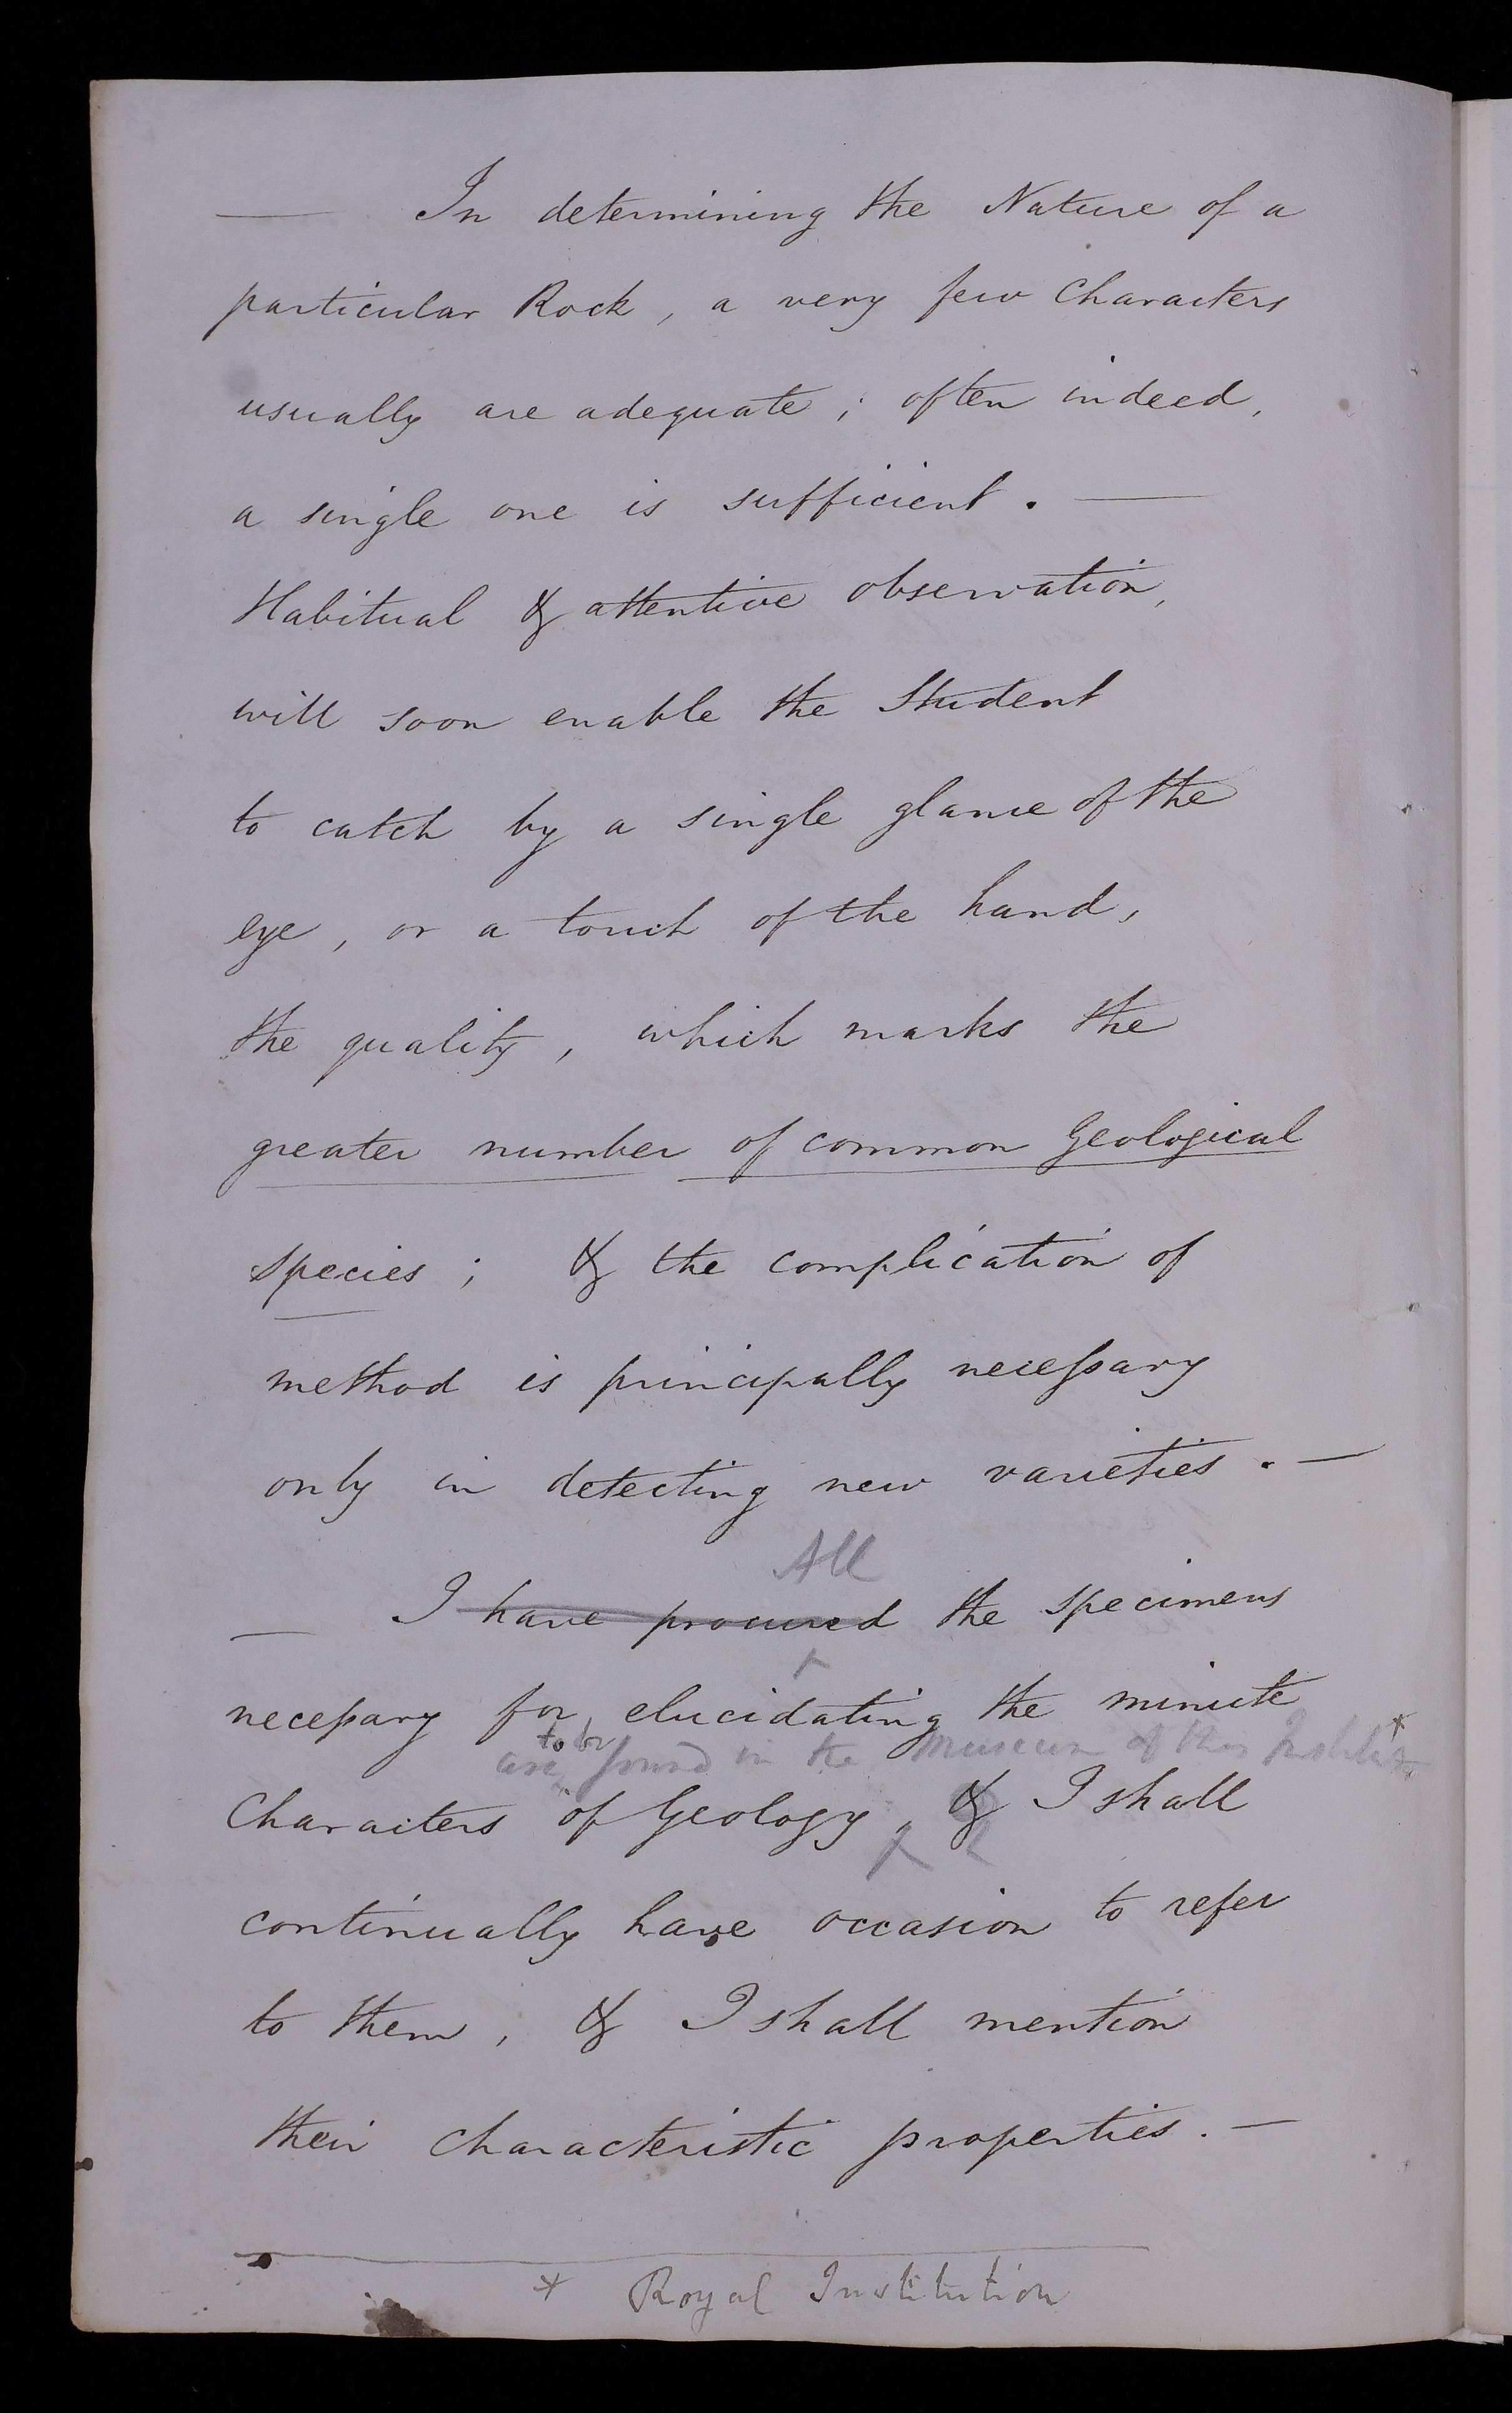 — In determining the Nature of a
particular Rock, a very few Characters
usually are adequate; often indeed,
a single one is sufficient. —
Habitual & attentive observation,
will soon enable the Student
to catch by a single glance of the
eye, or a touch of the hand,
the quality, which marks the
greater number of common Geological
species; & the complication of
method is principally necessary
only in detecting new varieties. —
All
— I have procured the specimens
necessary for elucidating the minute
are to be found in the Museum of this Institution *
Characters of Geology, & I shall
continually have occasion to refer
to them, & I shall mention
their characteristic properties. —
* Royal Institution